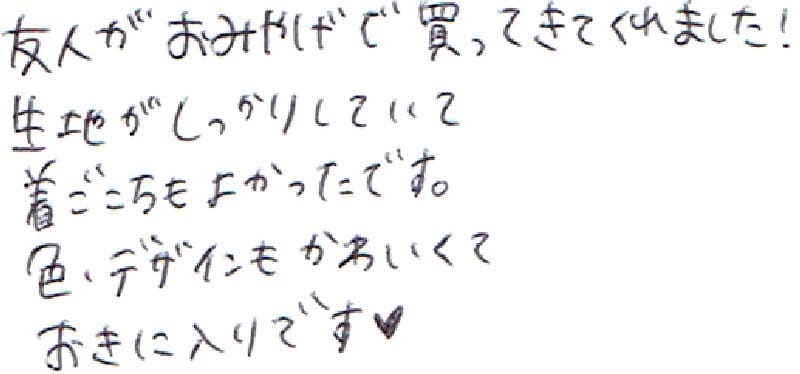 友人がおみやげで買ってきてくれました!
生地がしっかりしていて
着ごこちもよかったです。
色、デザインもかわいくて
おきに入りです♥